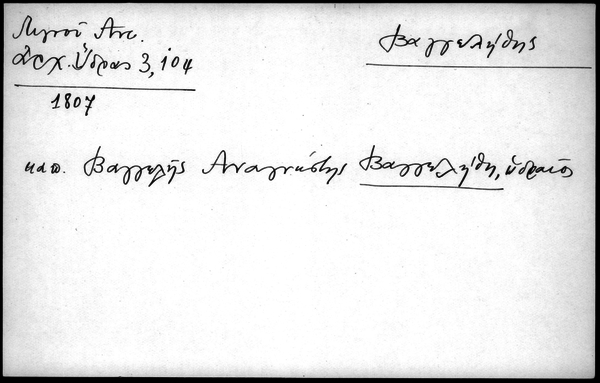 Λιγνοῦ Αντ.
ἀρχ. Ὕδρας 3, 104
1807
Βαγγελήθης
καπ. Βαγγελῆς Αναγνώστης Βαγγελήθη, ὑδραῖος